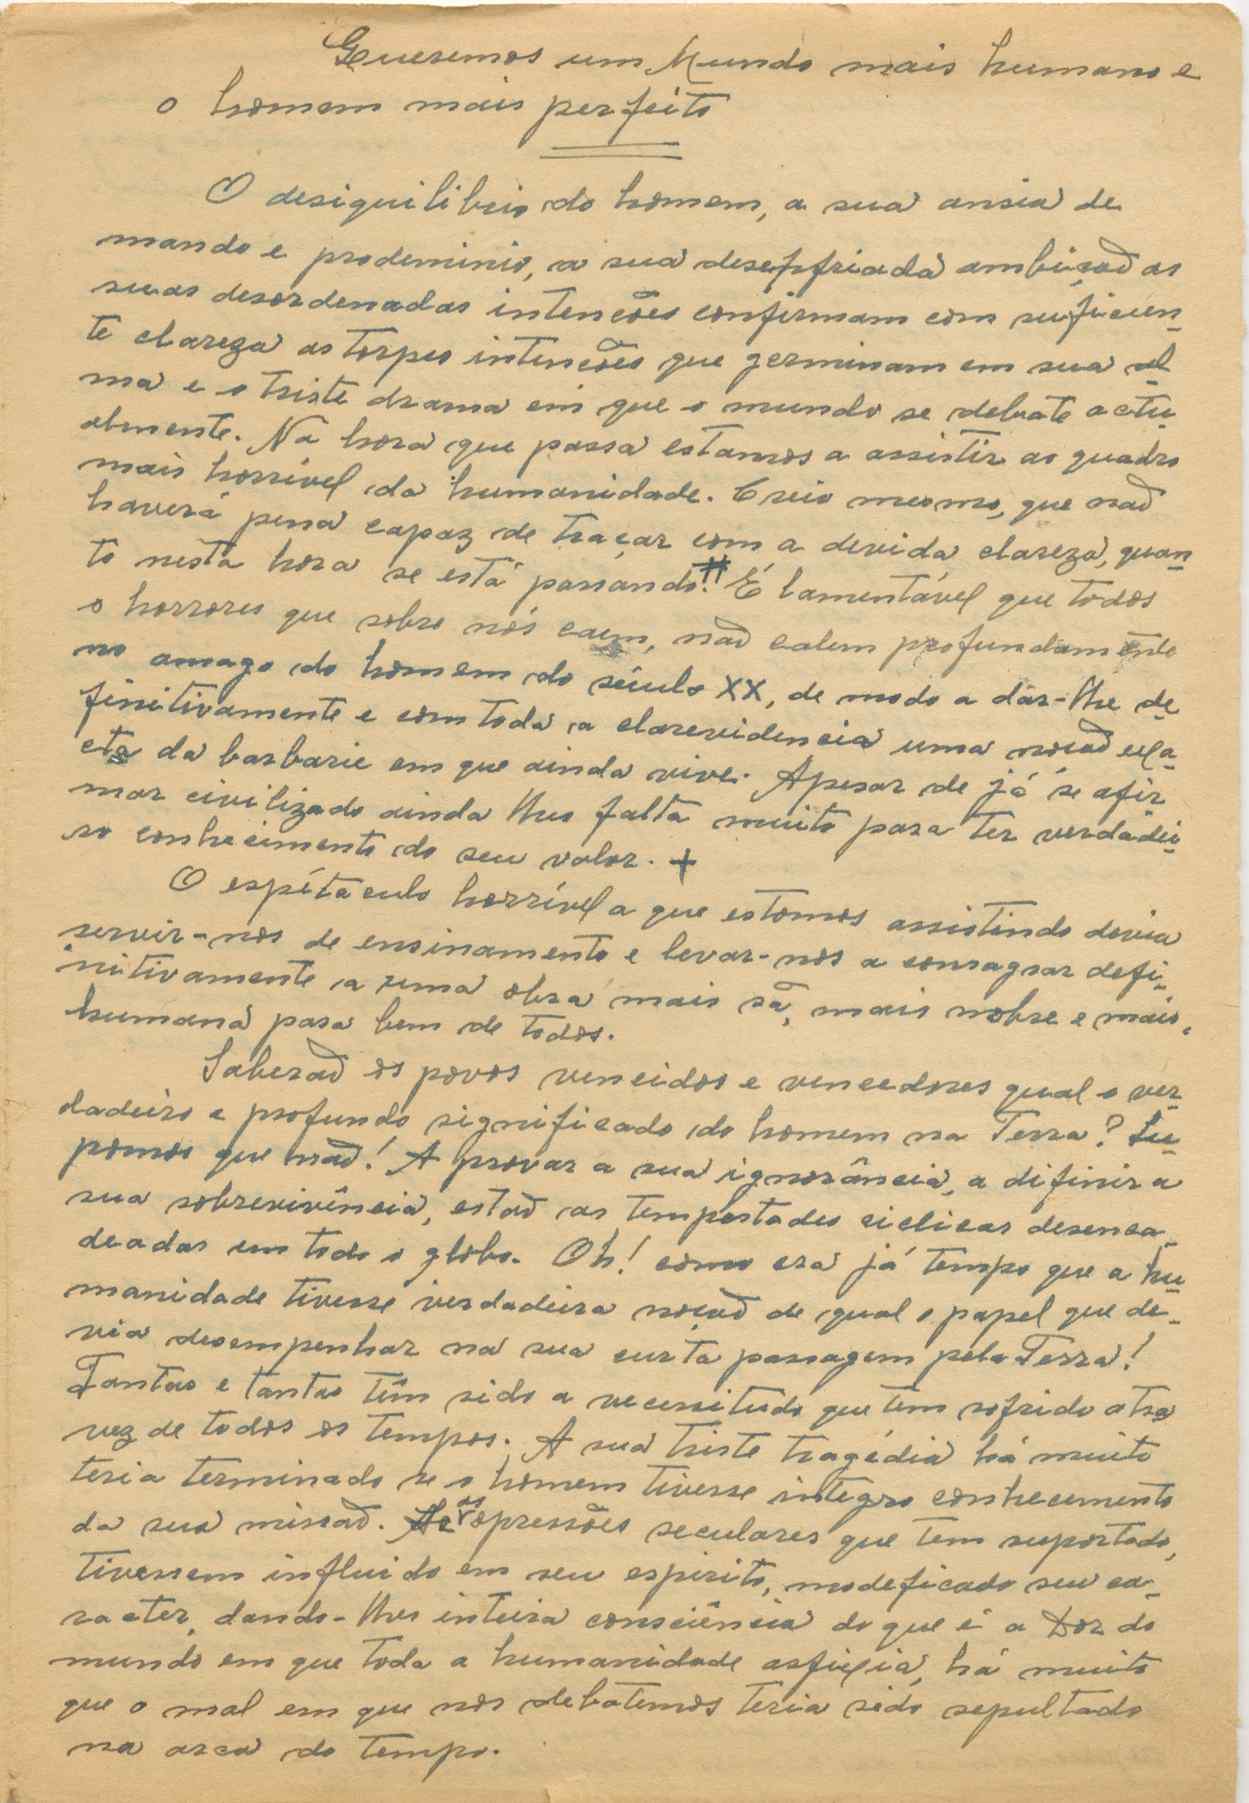 Queremos um Mundo mais humano e
o homem mais perfeito
O desiquilibrio do homem, a sua ansia de
mando e prodeminio, a sua desenfriada ambição as
suas desordenadas intencões confirmam com suficien-
te clareza as torpes intencões que germinam em sua al-
ma e o triste drama em que o mundo se debate actu-
almente. Na hora que passa estamos a assistir ao quadro
mais horrível da humanidade. Creio mesmo, que não
haverá pena capaz de traçar com a devida clareza, quan-
to nesta hora se está passando. # É lamentável que todos
o horrores que sobre nós caem, não calem profundamente
no amago do homem do século XX, de modo a dar-lhe de-
finitivamente e com toda a clarevidencia uma noção exa-
cta da barbarie em que ainda vive. Apesar de já se afir
mar civilizado ainda lhes falta muito para ter verdadei-
ro conhecimento do seu valor. +
O espítaculo horrível a que estamos assistindo devia
servir-nos de ensinamento e levar-nos a consagrar defi-
nitivamente a uma obra mais sã, mais nobre e mais,
humana para bem de todos.
Saberão os povos vencidos e vencedores qual o ver-
dadeiro e profundo significado do homem na Terra? Su-
pomos que não! A provar a sua ignorância, a difinir a
sua sobrevivência, estão as tempestades ciclicas desenca-
deadas em todo o globo. Oh! como era já tempo que a hu-
manidade tivesse verdadeira noção de qual o papel que de-
via desempenhar na sua curta passagem pela Terra!
Tantas e tantas têm sido a vecessitude que tem sofrido atra
vez de todos os tempos. A sua triste tragédia há muito
teria terminado se o homem tivesse integro conhecimento
da sua missão. as opressões seculares que tem suportado,
tivessem influido em seu espirito, modeficado seu ca-
racter, dando-lhes inteira consciência do que é a Dor do
mundo em que toda a humanidade asfixia, há muito
que o mal em que nos debatemos teria sido sepultado
na arca do tempo.